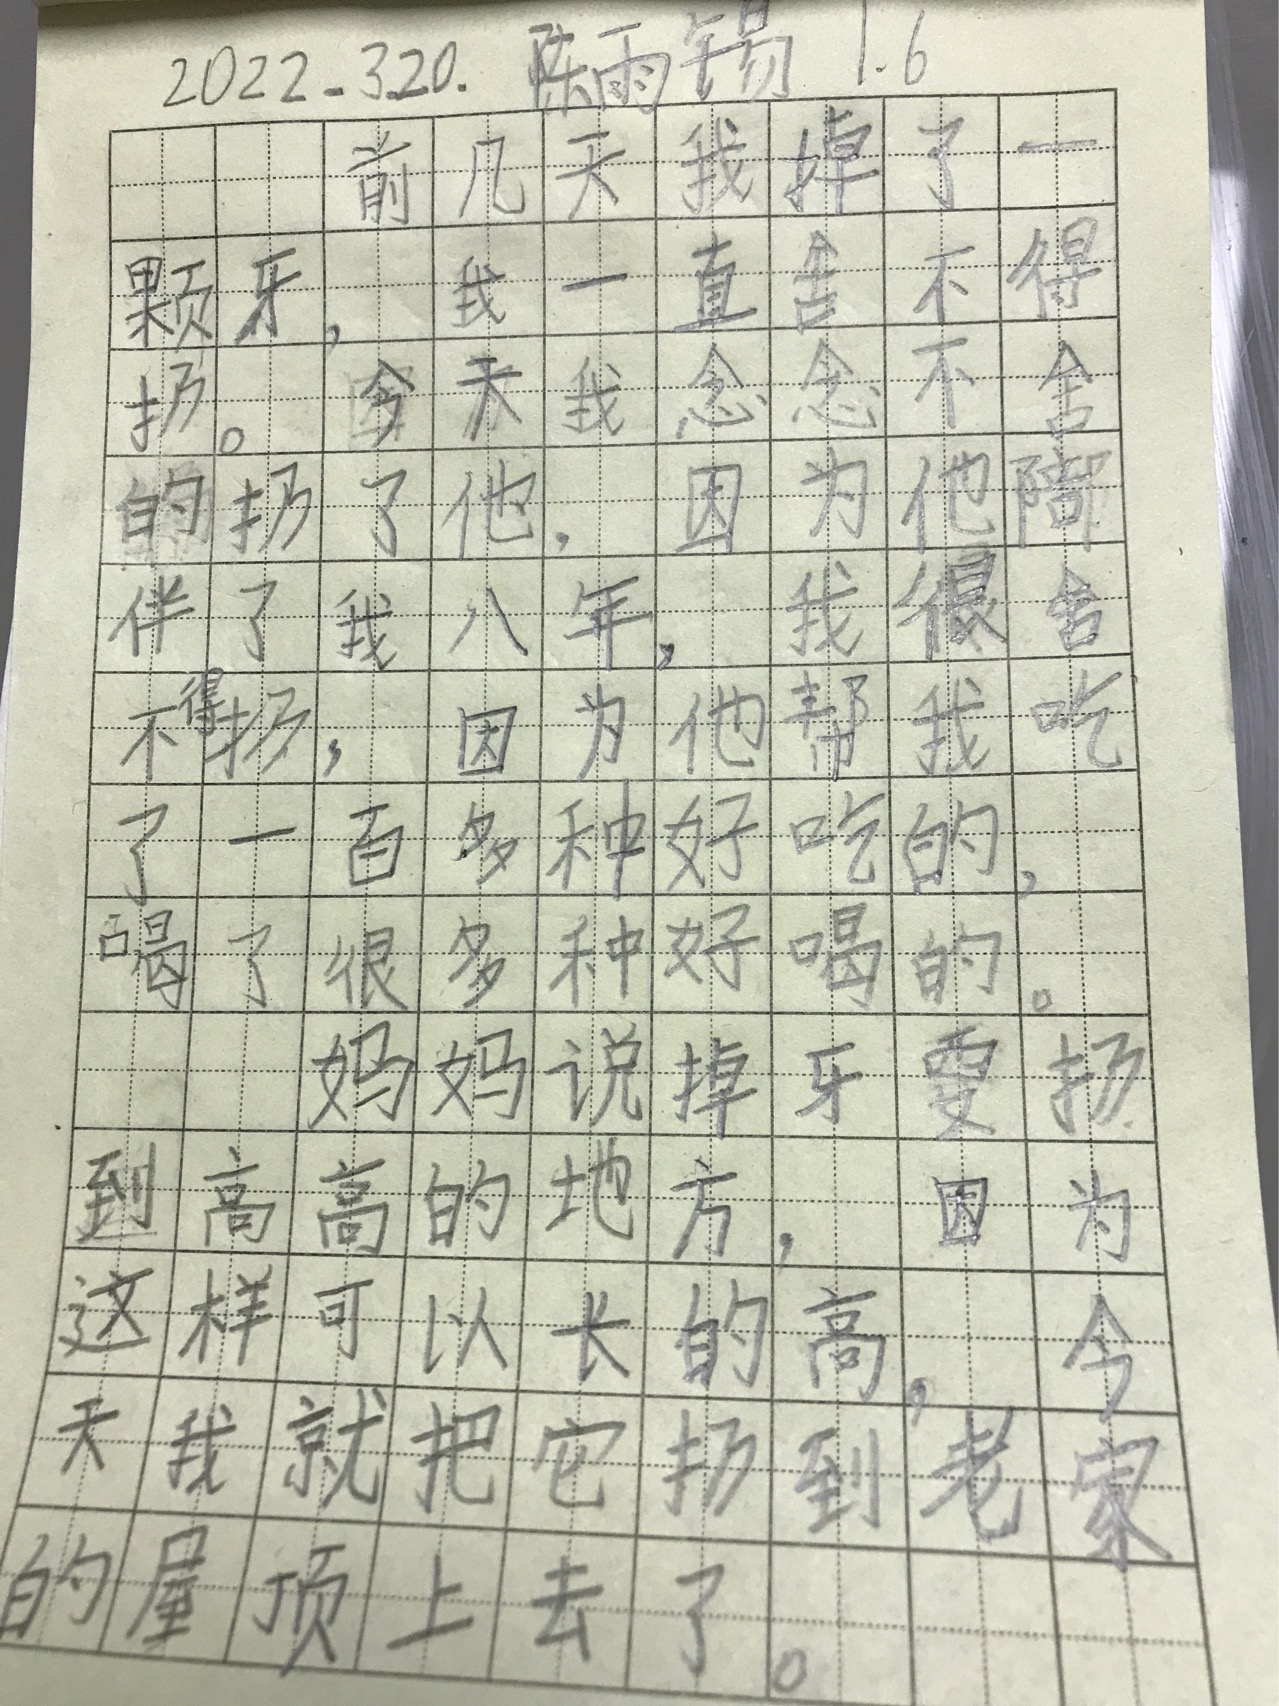 2022.3.20. 陈雨锡 1.6
前几天我掉了一
颗牙，我一直舍不得
扔。今天我念念不舍
的扔了他，因为他陪
伴了我八年，我很舍
不得扔，因为他帮我吃
了一百多种好吃的，
喝了很多种好喝的。
妈妈说掉牙要扔
到高高的地方，因为
这样可以长的高，今
天我就把它扔到老家
的屋顶上去了。